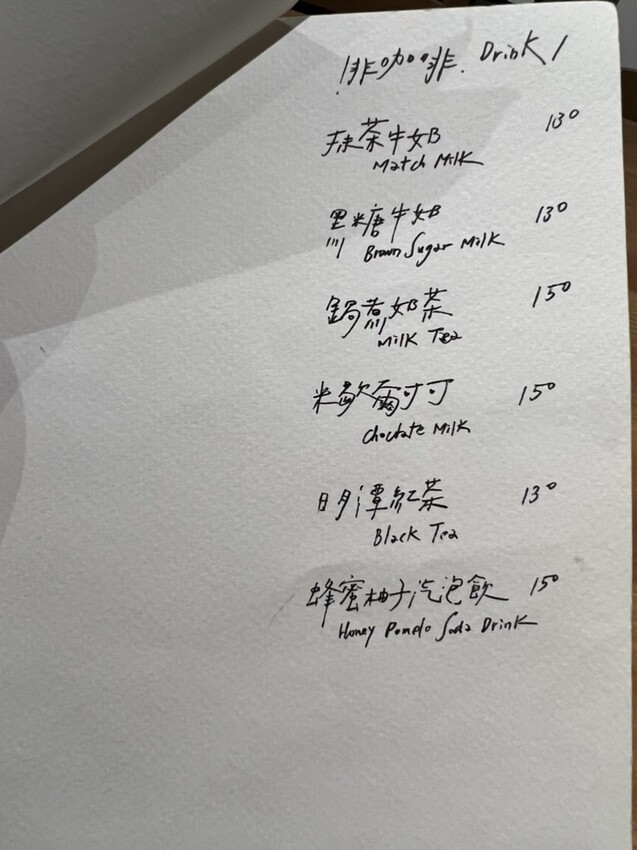 !啡咖啡. Drink /
抹茶牛奶 130
Match Milk
黑糖牛奶 130
Brown Sugar Milk
鍋煮奶茶 150
Milk Tea
米歇爾可可 150
Choclate Milk
日月潭紅茶 130
Black Tea
蜂蜜柚子汽泡飲 150
Honey Pomelo Soda Drink